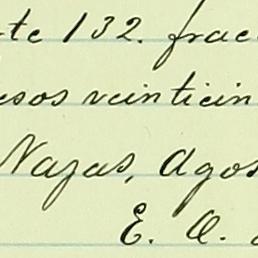 te 132. frac
esos veinticin
Nazas, Agos
E. A.